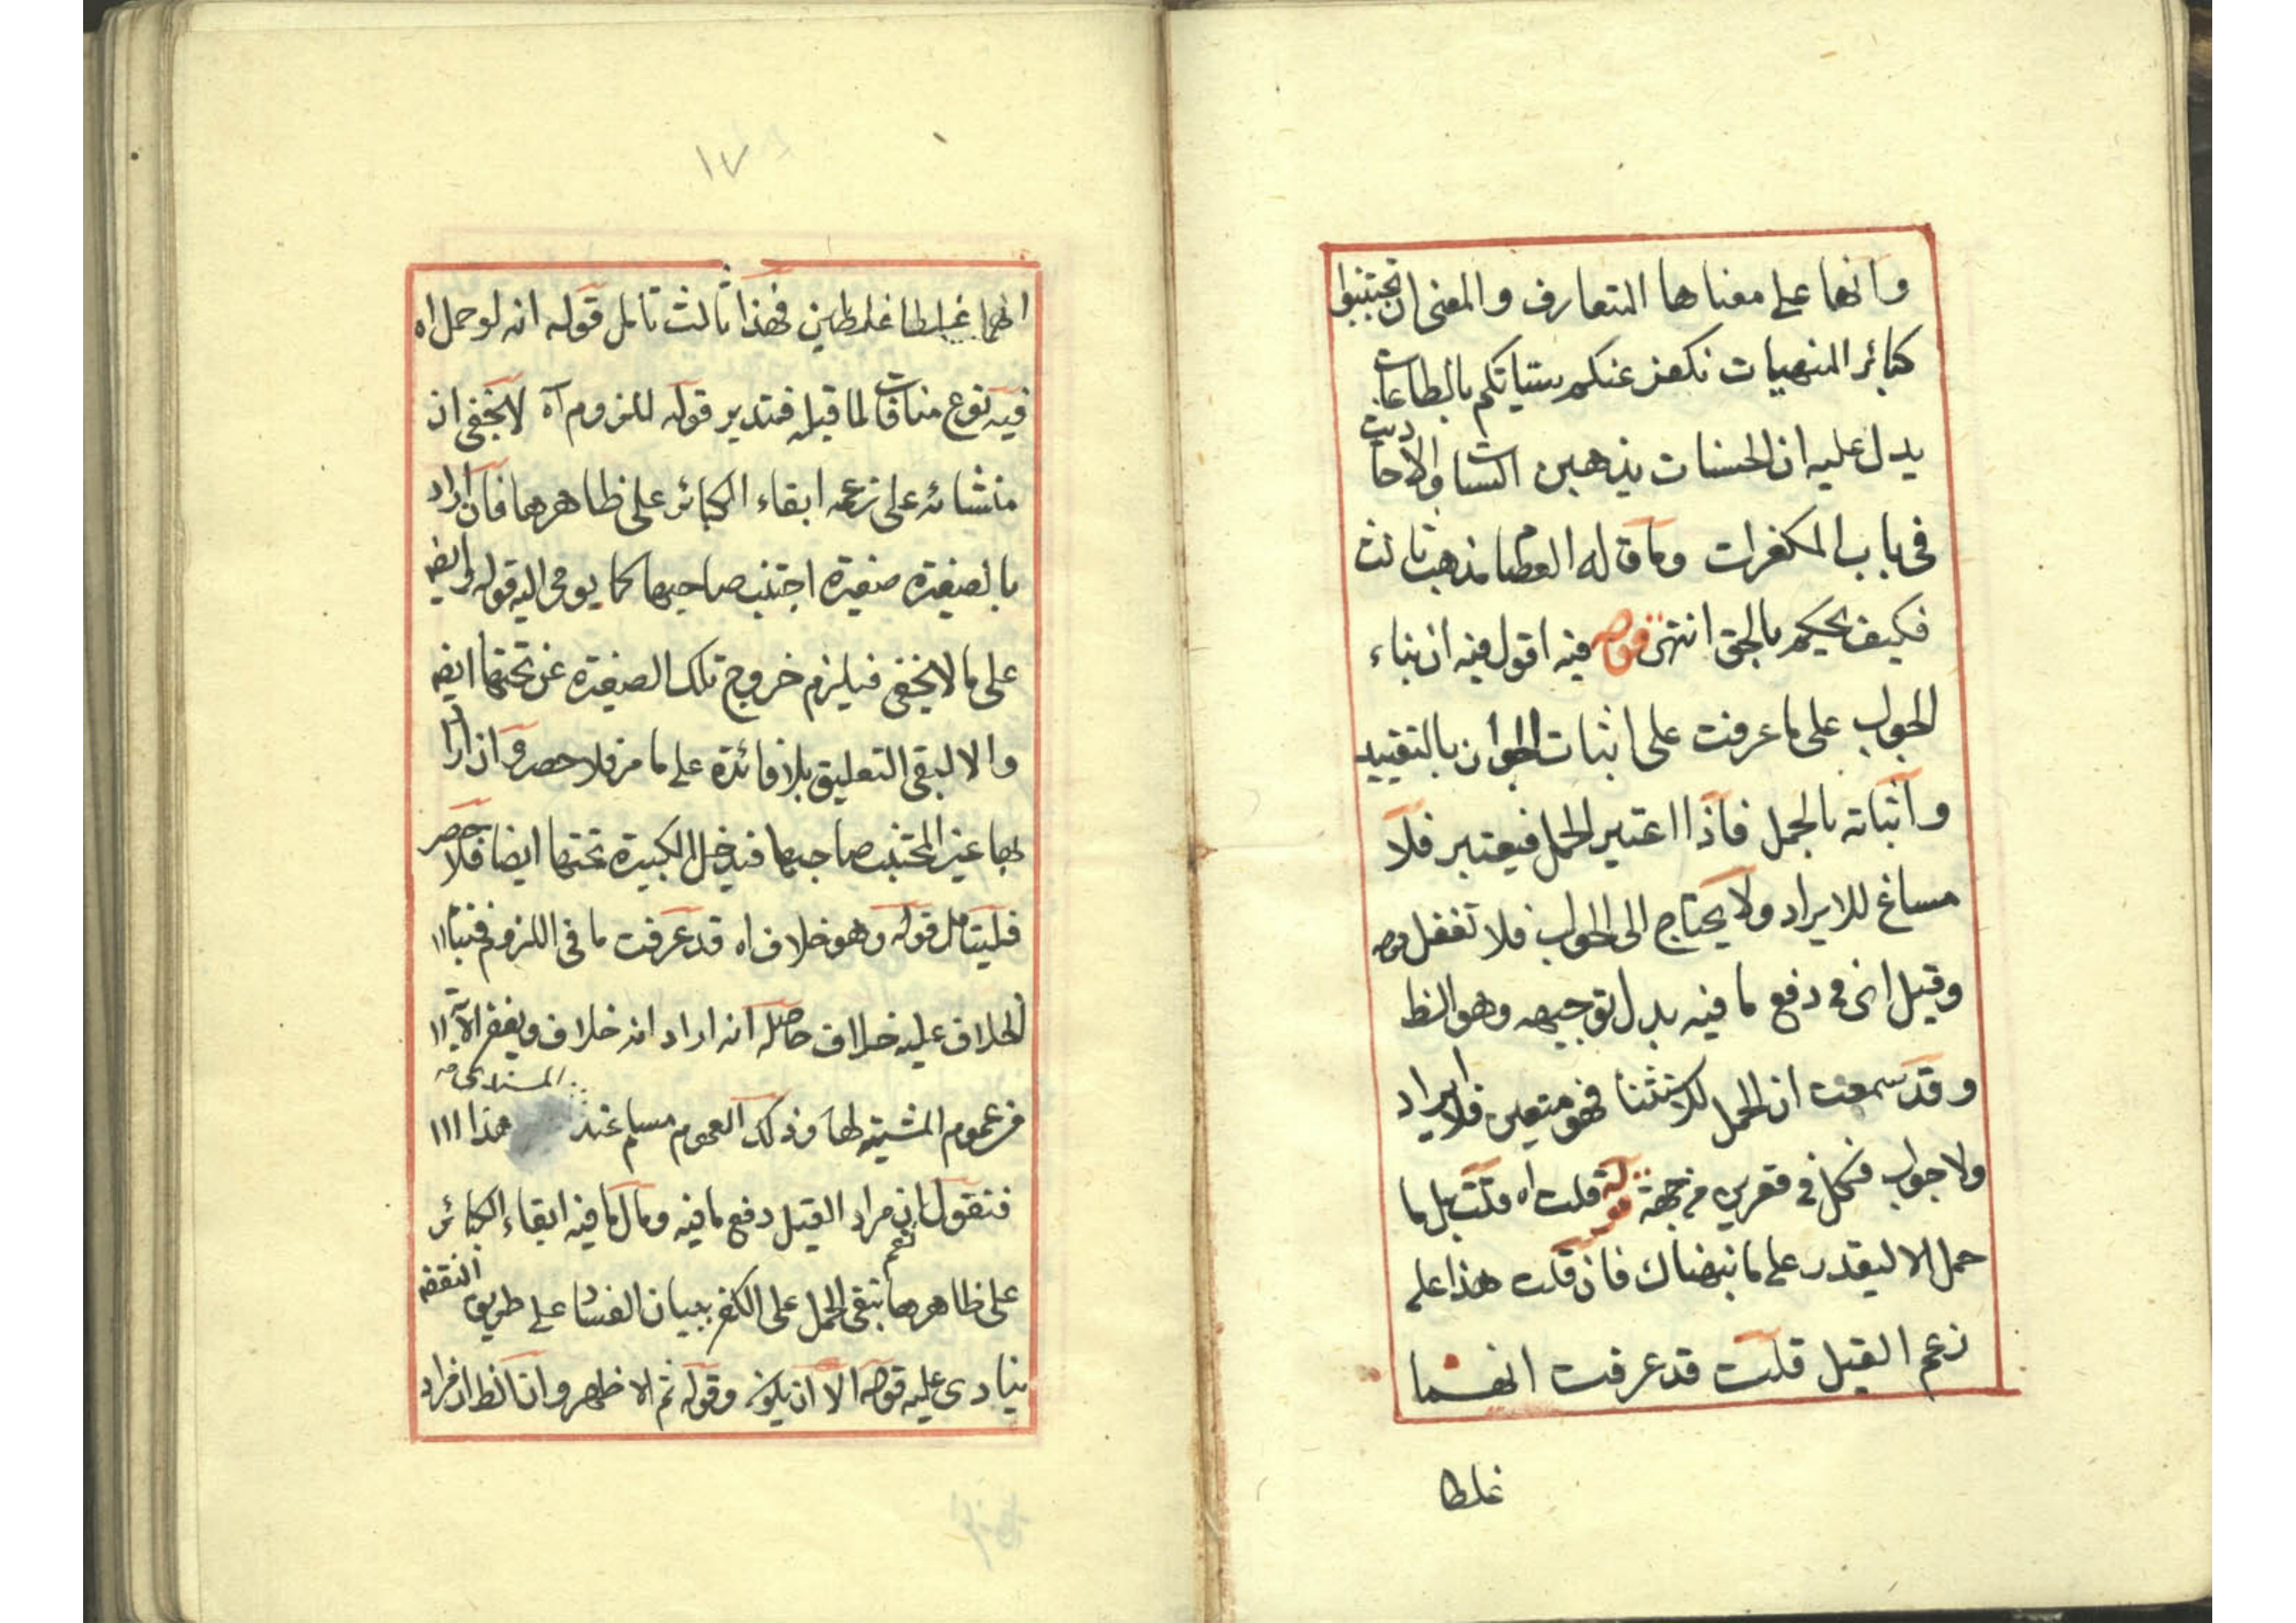 وانها على معناها المتعارف والمعنى ان تجتنبوا
كبائر المنهيات نكفر عنكم سيئاتكم بالطاعات
يدل عليه ان الحسنات يذهبن السيئات والاحاديث
فى باب المكفرات وما قاله العصام مذهب ثالث
فكيف يحكم بالحق انتهى قوله فيه اقول فيه ان بناء
الجواب على ما عرفت على اثبات الجواز بالتقييد
واثباته بالحمل فاذا اعتبر الحمل فيعتبر فلا
مساغ للايراد ولا يحتاج الى الجواب فلا تغفل قوله
وقيل انى فى دفع ما فيه بدل توجيهه وهو الظ
وقد سمعت ان الحمل للاستثنا فهو متعين فلا ايراد
ولا جواب فكل فى من جهة قوله قلت اه قلت بل ما
حمل الا ليقدر على ما نبهناك فان قلت هذا على
زعم القيل قلت قد عرفت انهما
غلطا
١٧
انهما غلطا غلطين فهذا ثالث تامل قوله انه لو حمل اه
فيه نوع منافات لما قبله فتدبر قوله للزوم اه لا يخفى ان
منشائه على زعمه ابقاء الكبائر على ظاهرها فان اراد
بالصغيرة صغيرة اجتنب صاحبها كما يومى اليه قوله ايض
على ما لا يخفى فيلزم خروج تلك الصغيرة عن تحتها ايض
والا لبقى التعليق بلا فائدة على ما مر فلا حصر وان اراد
بها غير المجتنب صاحبها فيدخل الكبيرة تحتها ايضا فلا حصر
فليتامل قوله وهو خلاف اه قد عرفت ما فى اللزوم فبناء
الخلاف عليه خلاف حاصله انه اراد انه خلاف ويغفر الآية
من عموم المشيته لها وذلك العموم مسلم عند المستدل هذا
فنقول ان مراد القيل دفع ما فيه ومال ما فيه ابقاء الكبائر
على ظاهرها نعم بقى الحمل على الكفر ببيان الفساد على طريق النقض
ينادى عليه قوله الا ان يكون وقوله ثم الاظهر وانا انظر ان مراد